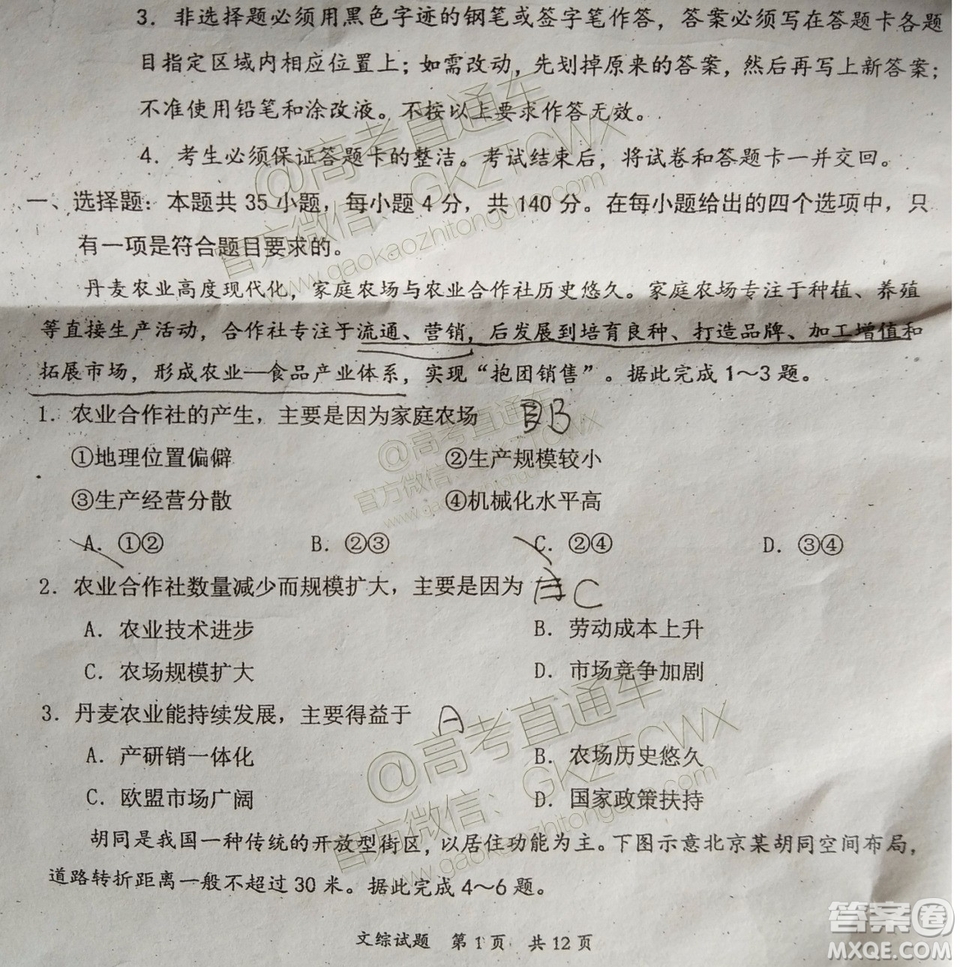 3．非选择题必须用黑色字迹的钢笔或签字笔作答，答案必须写在答题卡各题
目指定区域内相应位置上；如需改动，先划掉原来的答案，然后再写上新答案；
不准使用铅笔和涂改液。不按以上要求作答无效。
4．考生必须保证答题卡的整洁。考试结束后，将试卷和答题卡一并交回。
一、选择题：本题共 35 小题，每小题 4 分，共 140 分。在每小题给出的四个选项中，只
有一项是符合题目要求的。
丹麦农业高度现代化，家庭农场与农业合作社历史悠久。家庭农场专注于种植、养殖
等直接生产活动，合作社专注于流通、营销，后发展到培育良种、打造品牌、加工增值和
拓展市场，形成农业—食品产业体系，实现“抱团销售”。据此完成 1～3 题。
1．农业合作社的产生，主要是因为家庭农场 B
①地理位置偏僻 ②生产规模较小
③生产经营分散 ④机械化水平高
A．①② B．②③ C．②④ D．③④
2．农业合作社数量减少而规模扩大，主要是因为 C
A．农业技术进步 B．劳动成本上升
C．农场规模扩大 D．市场竞争加剧
3．丹麦农业能持续发展，主要得益于 A
A．产研销一体化 B．农场历史悠久
C．欧盟市场广阔 D．国家政策扶持
胡同是我国一种传统的开放型街区，以居住功能为主。下图示意北京某胡同空间布局，
道路转折距离一般不超过 30 米。据此完成 4～6 题。
文综试题 第 1 页 共 12 页
@高考直通车
官方微信：GKZTCWX
www.gaokaozhitongche
@高考直通车
官方微信
www.gao
@高考直通车
官方微信：GKZTCWX
www.gaokaozhitong
答案圈
MXQE.COM